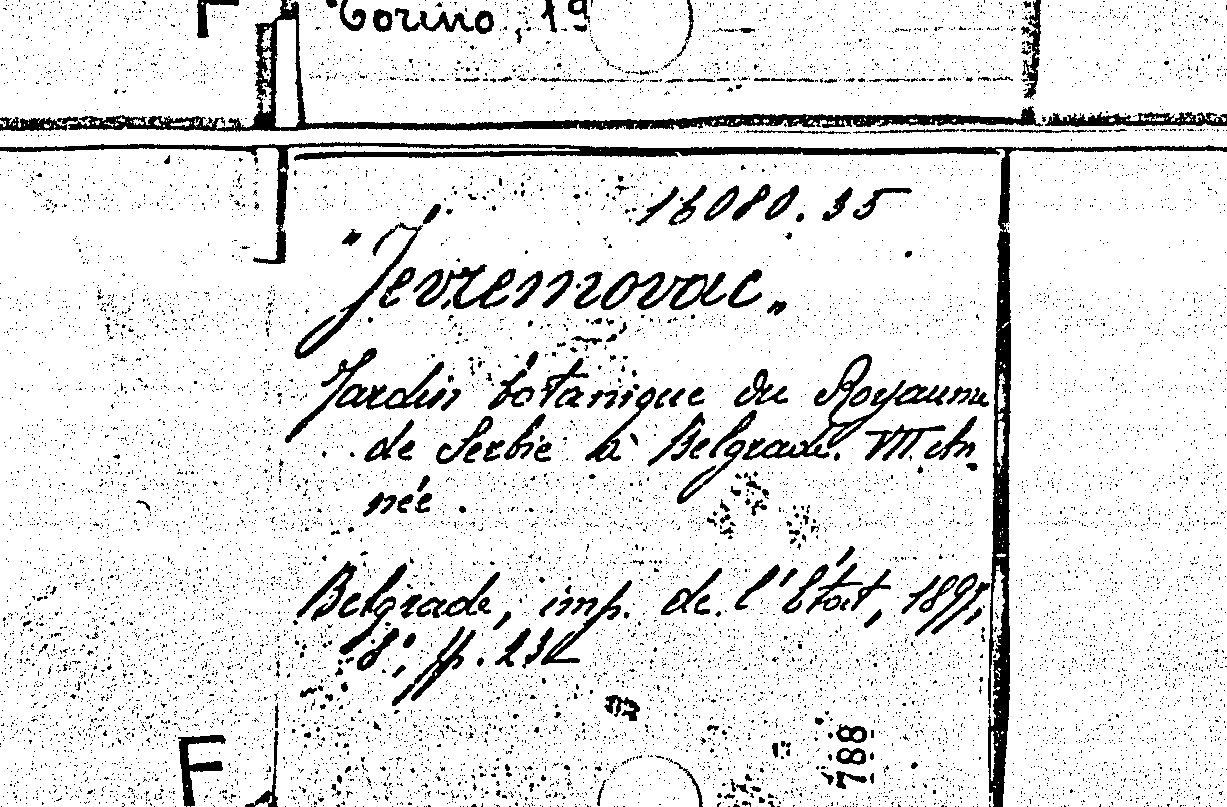 F
Torino, 19
16080.35
"Jevremovac„
Jardin botanique du Royaume
de Serbie à Belgrade. VII An
née.
Belgrade, imp. de l'État,
8°, pp.
788
F